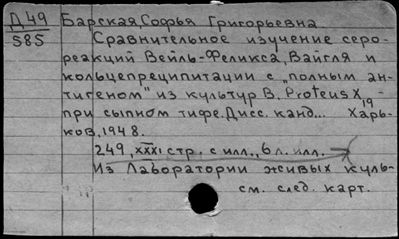 Д 49
585
Барская, Софья Григорьевна
Сравнительное изучение серо-
реакций Вейль-Феликса, Вайгля и
кольцепреципитации с „полным ан-
тигеном" из культур B. Proteus X19 -
при сыпном тифе. Дисс. канд... Харь-
ков, 1948.
249, XXXI стр. с илл., 6 л. илл.
Из Лаборатории живых куль-
см. след. карт.